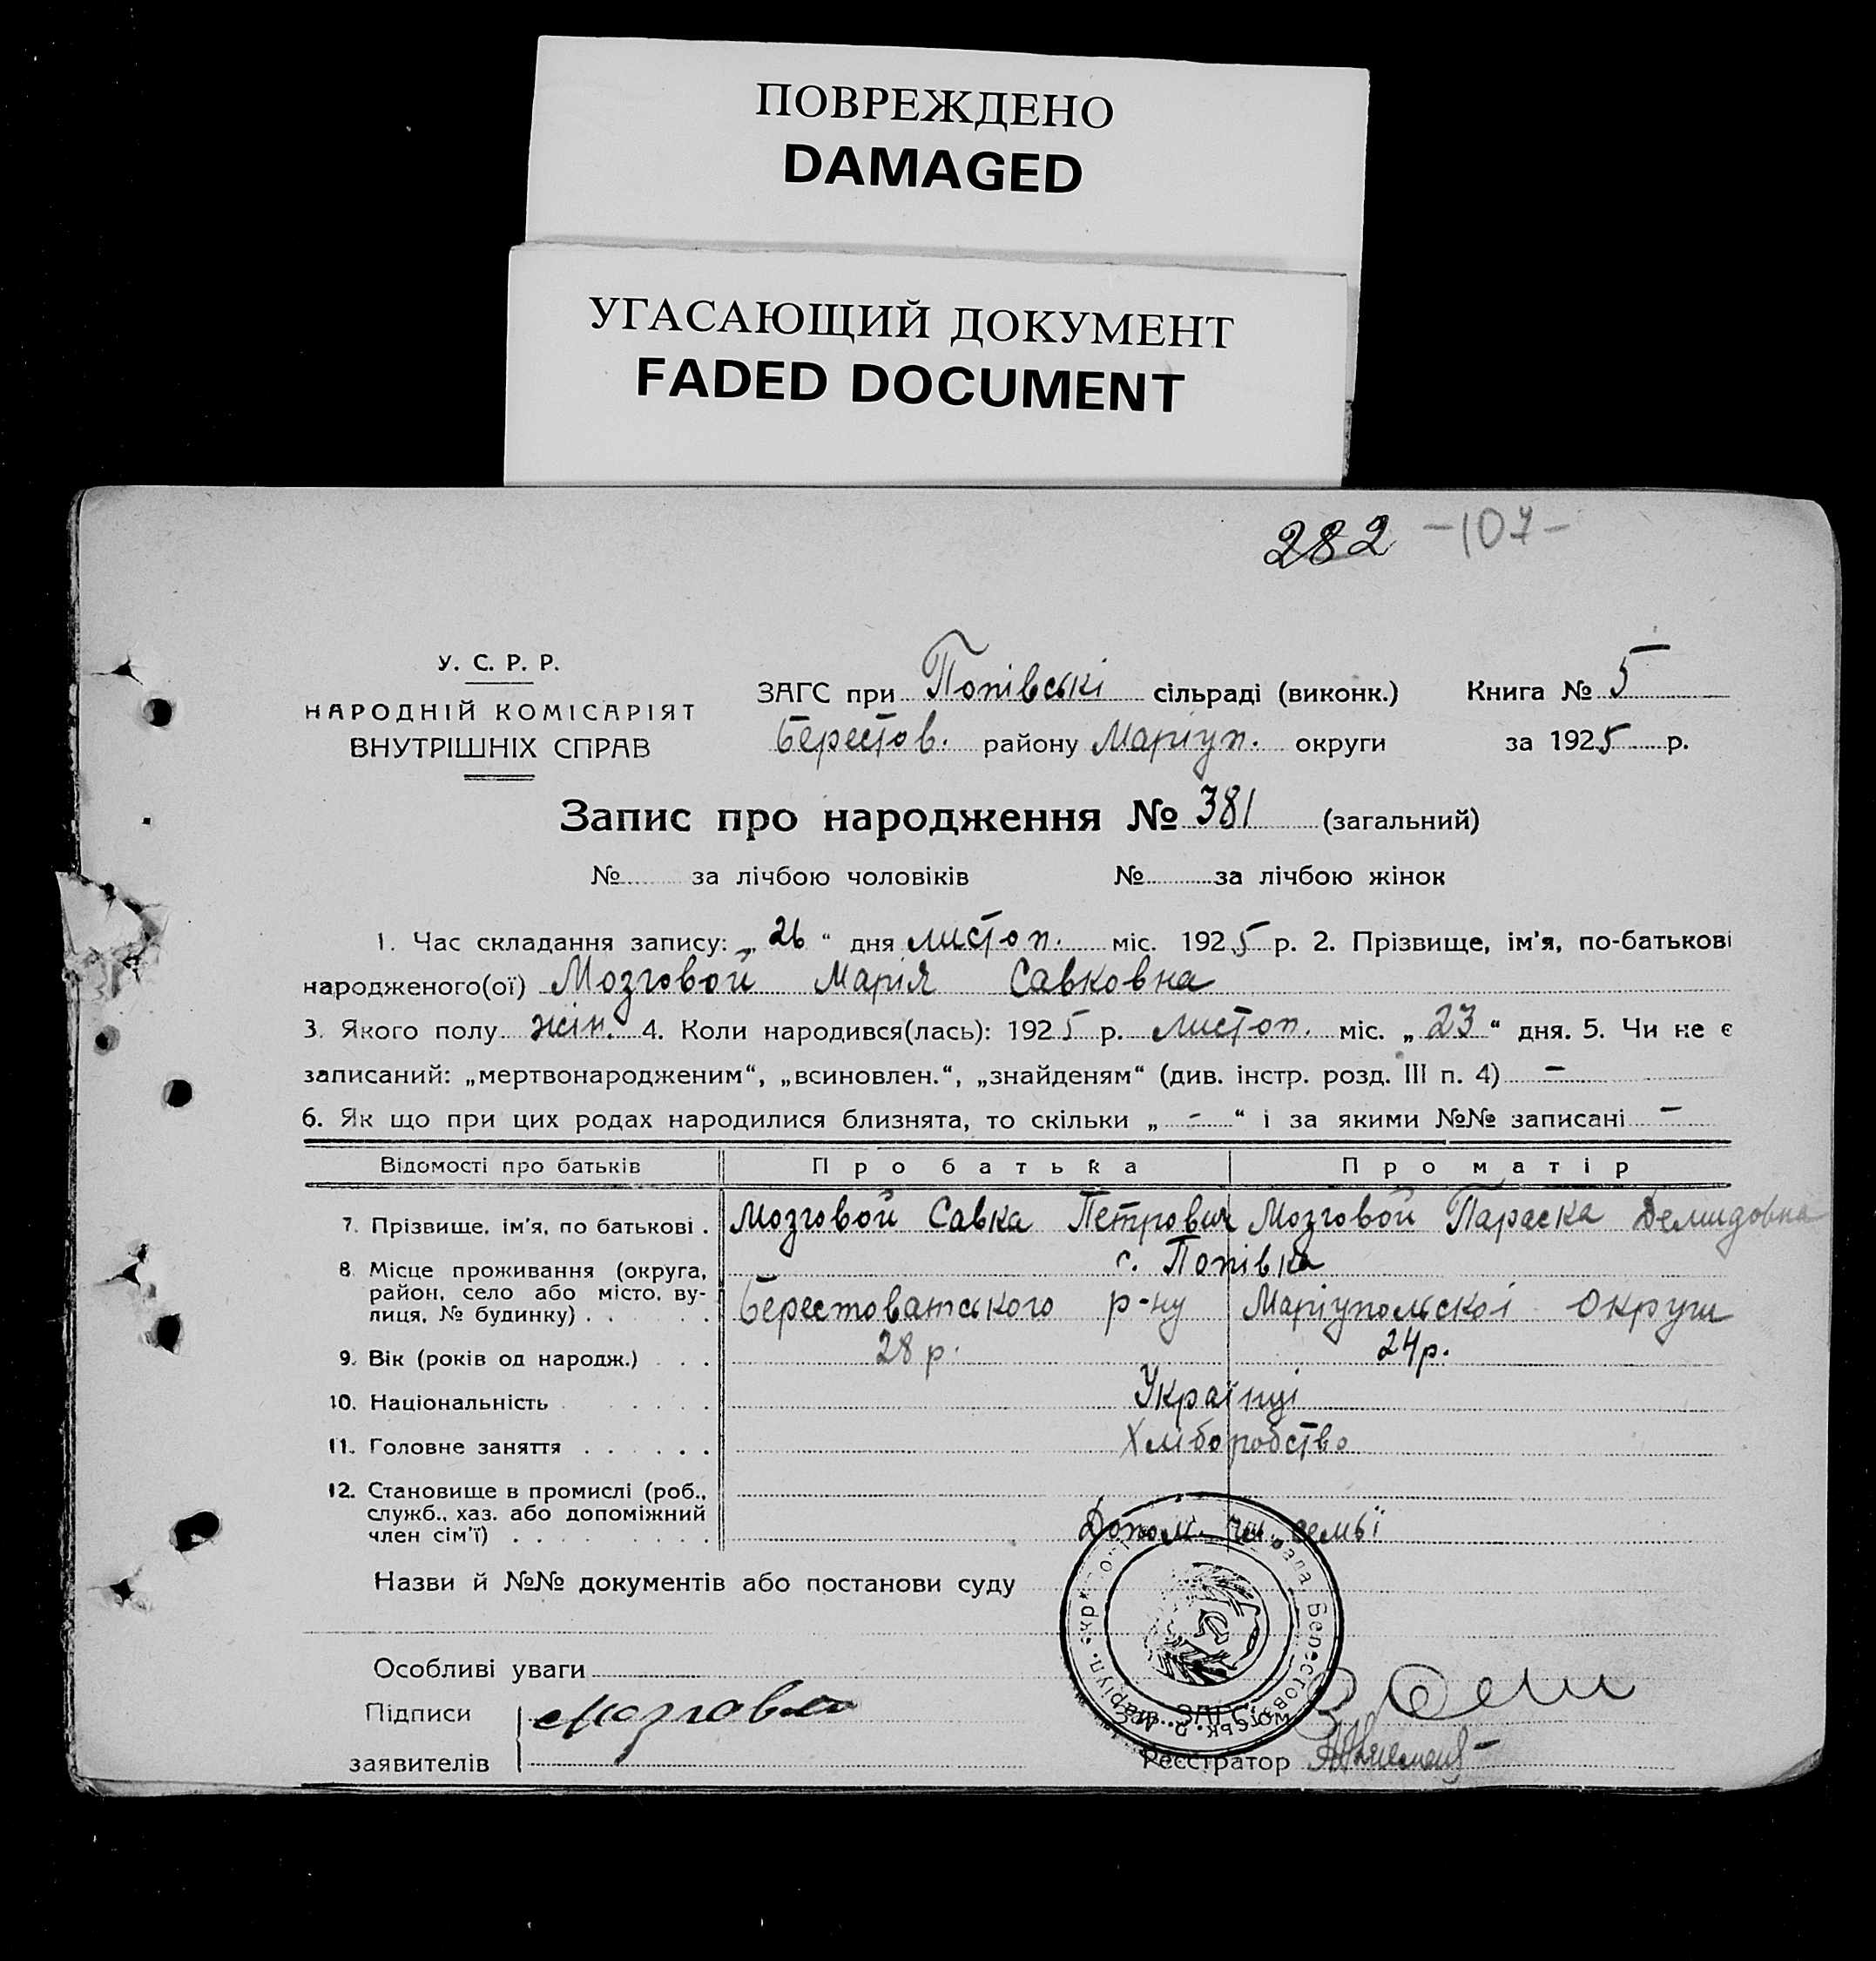 ПОВРЕЖДЕНО
DAMAGED
УГАСАЮЩИЙ ДОКУМЕНТ
FADED DOCUMENT
282 -107-
У. С. Р. Р.
НАРОДНІЙ КОМІСАРІЯТ
ВНУТРІШНІХ СПРАВ
ЗАГС при Попівські сільраді (виконк.) Книга № 5
Берестов. району Маріуп. округи за 1925 р.
Запис про народження № 381 (загальний)
№ за лічбою чоловіків № за лічбою жінок
1. Час складання запису: „ 26 “ дня листоп. міс. 1925 р. 2. Прізвище, ім'я, по-батькові
народженого(ої) Мозговой Марія Савковна
3. Якого полу жін. 4. Коли народився(лась): 1925 р. листоп. міс. „ 23 “ дня. 5. Чи не є
записаний: „мертвонародженим“, „всиновлен.“, „знайденям“ (див. інстр. розд. III п. 4) –
6. Як що при цих родах народилися близнята, то скільки „ - “ і за якими №№ записані –
Відомості про батьків Про батька Про матір
7. Прізвище, ім'я, по батькові . Мозговой Савка Петрович Мозговой Параска Демидовна
8. Місце проживання (округа, район, село або місто, вулиця, № будинку) . . . с. Попівка
Берестоватського р-ну Маріупольскої округи
9. Вік (років од народж.) . . . 28 р. 24 р.
10. Національність . . . . . Українці
11. Головне заняття . . . . . . Хліборобство
12. Становище в промислі (роб.,
служб., хаз. або допоміжний
член сім'ї) . . . . . . . . . Допом. чл. семьї
Назви й №№ документів або постанови суду
Особливі уваги
Підписи
заявителів
Мозговой
Зав. ЗАГС
Реєстратор